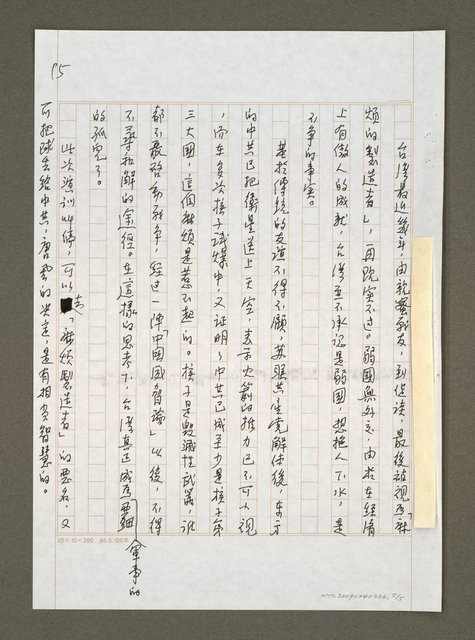 P5
台灣最近幾年,由親密戰友,到促談,最後被視為「麻
煩的製造者」,再現實不過。弱國無外交,由者在經濟
上有傲人的成就,台灣並不承認是弱國,想拖人下水,是
不爭的事實。
基於傳統的友誼不得不顧,蘇聯共產黨解體後,
的中共已把衛星送上天空,表示火箭的推力已不可小視
,而在多次核子試爆中,又證明了中共已成至少是核子第
三大國,這個麻煩是惹不起的。核子是毀滅性武器,誰
都不敢啟動戰爭,經過一陣「中國威脅論」以後,不得
不尋和解的途徑。在這樣的思考下,台灣真正成為軍事的
的孤兒了。
此次資訓此條,可以去「麻煩製造者」的惡名,又
可把球丟給中共,唐飛的決定,是有相當智慧的。
25×10=300 86.5.100本
NMTL20090240336. 5/5